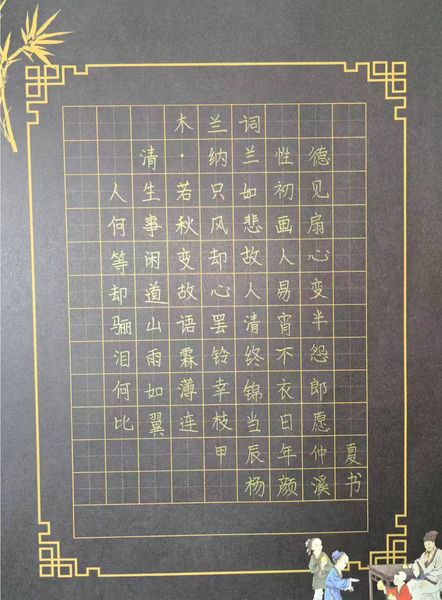 木兰词
清·纳兰性德
人生若只如初见
何事秋风悲画扇
等闲变却故人心
却道故心人易变
骊山语罢清宵半
泪雨霖铃终不怨
何如薄幸锦衣郎
比翼连枝当日愿
甲辰年仲夏
杨颜溪书